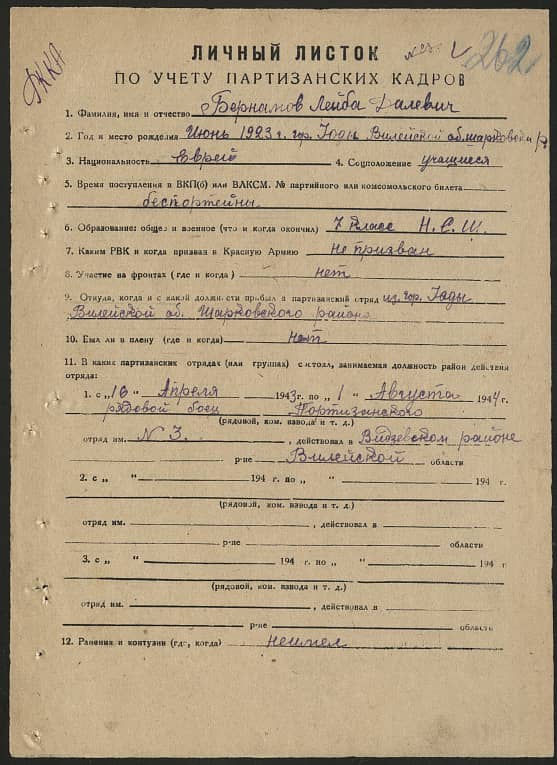 РККА
262
ЛИЧНЫЙ ЛИСТОК
ПО УЧЕТУ ПАРТИЗАНСКИХ КАДРОВ
1. Фамилия, имя и отчество Бернамов Лейба Далевич
2. Год и место рождения Июнь 1923 г. гор. Годы Вилейской об. шарковском р.
3. Национальность Еврей 4. Соцположение учащиеся
5. Время поступления в ВКП(б) или ВЛКСМ. № партийного или комсомольского билета
беспортейны
6. Образование: общее и военное (что и когда окончил) 7 класс Н.С.Ш.
7. Каким РВК и когда призван в Красную Армию не призван
8. Участие на фронтах (где и когда) нет
9. Откуда, когда и с какой должности прибыл в партизанский отряд из гор. Годы
Вилейской об. Шарковского района
10. Был ли в плену (где и когда) нет
11. В каких партизанских отрядах (или группах) состоял, занимаемая должность район действия
отряда:
1. с „16 " Апреля 1943г. по „ 1 " Августа 1944г.
рядовой боец Портизанского
(рядовой, ком. взвода и т. д.)
отряд им. N 3. , действовал в Видзевском районе
р-не Вилейской области
2. с „ " 194 г. по „ " 194 г.
(рядовой, ком. взвода и т. д.)
отряд им. , действовал в
р-не области
3. с „ " 194 г. по „ " 194 г
(рядовой, ком. взвода и т. д.)
отряд им. , действовал в
р-не области
12. Ранения и контузии (где, когда) неимел